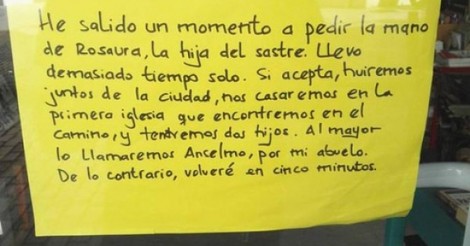 He salido un momento a pedir la mano
de Rosaura, la hija del sastre. Llevo
demasiado tiempo solo. Si acepta, huiremos
juntos de la ciudad, nos casaremos en la
primera iglesia que encontremos en el
camino, y tentremos dos hijos. Al mayor
lo llamaremos Anselmo, por mi abuelo.
De lo contrario, volveré en cinco minutos.